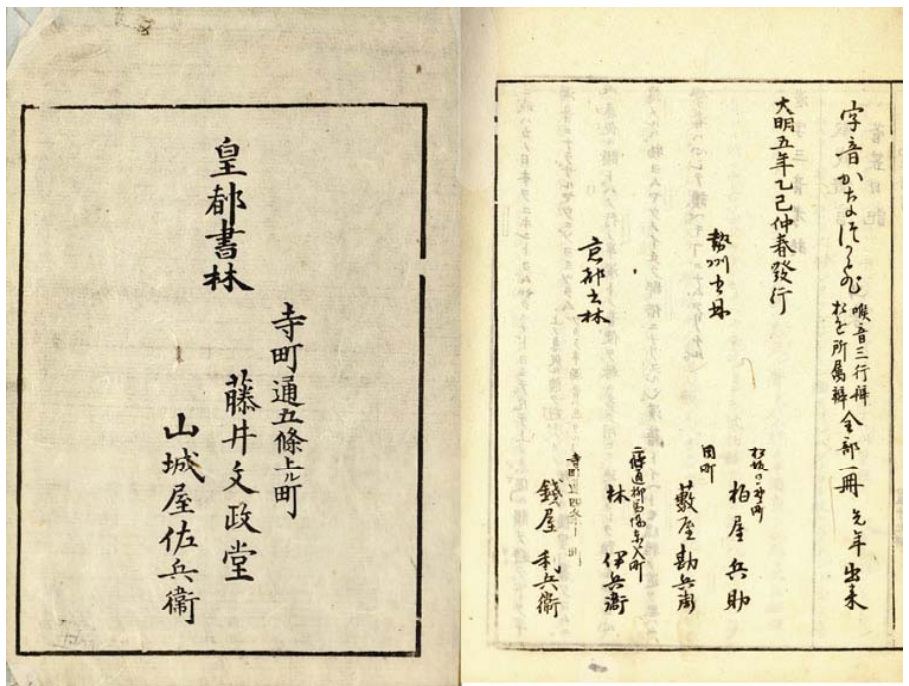 字音かなつかひ
喉音三行辨
おを所属辨
全部一冊 先年出来
天明五年乙巳仲春發行
勢州書林
松坂日野町
柏屋兵助
同町
藪屋勘兵衛
京都書林
二條通柳馬場東入町
林伊兵衞
錢屋利兵衞
皇都書林
寺町通五條上ル町
藤井文政堂
山城屋佐兵衞